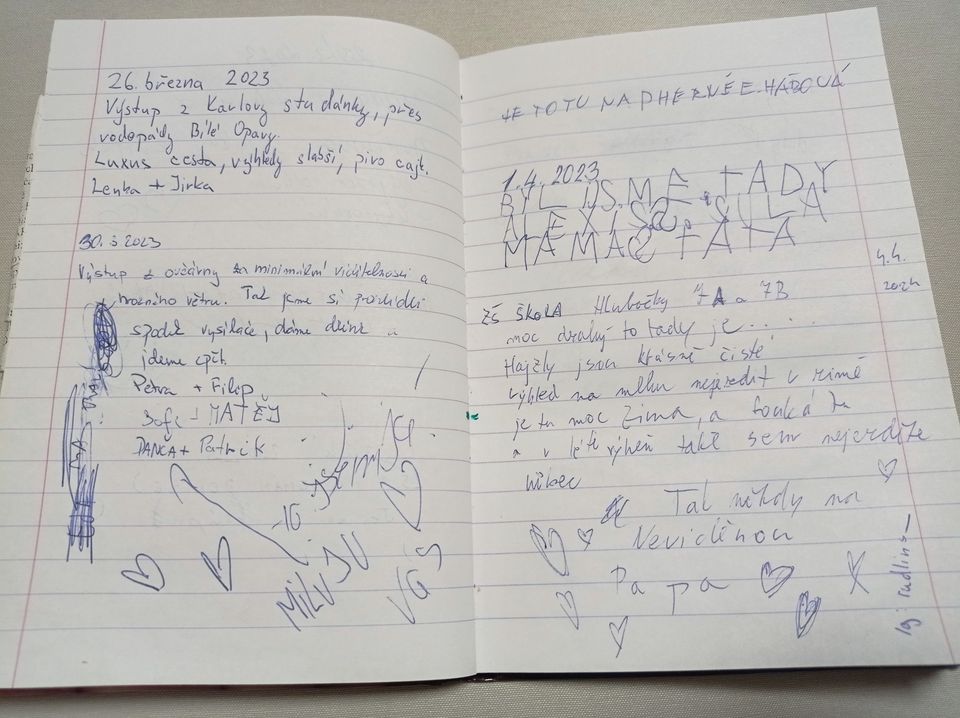 26. března 2023
Výstup z Karlovy studánky, přes
vodopády Bílé Opavy.
Luxus cesta, výhledy slabší, pivo cajk.
Lenka + Jirka
30. 3 2023
Výstup z ovčárny za minimální viditelnosti a
mrazného větru. Tak jsme si prohlídli
spodek vysílače, dáme drink a
jdeme zpět.
Petra + Filip
Sofi + MATĚJ
DANČA + Patrik
MILUJU
VÁS
JE TO TU NÁDHERNÉ
1.4.2023
BYLI JSME TADY
MÁMA @ TÁTA
4.4.
2024
ZŠ ŠKOLA Hlubočky 7A a 7B
moc drahý to tady je.....
Hajzly jsou krásně čisté
výhled na mlhu nejezdit v zimě
je tu moc zima, a fouká tu
a v létě výheň také sem nejezděte
vůbec
Tak někdy na
Neviděnou
Pa pa
Ig: